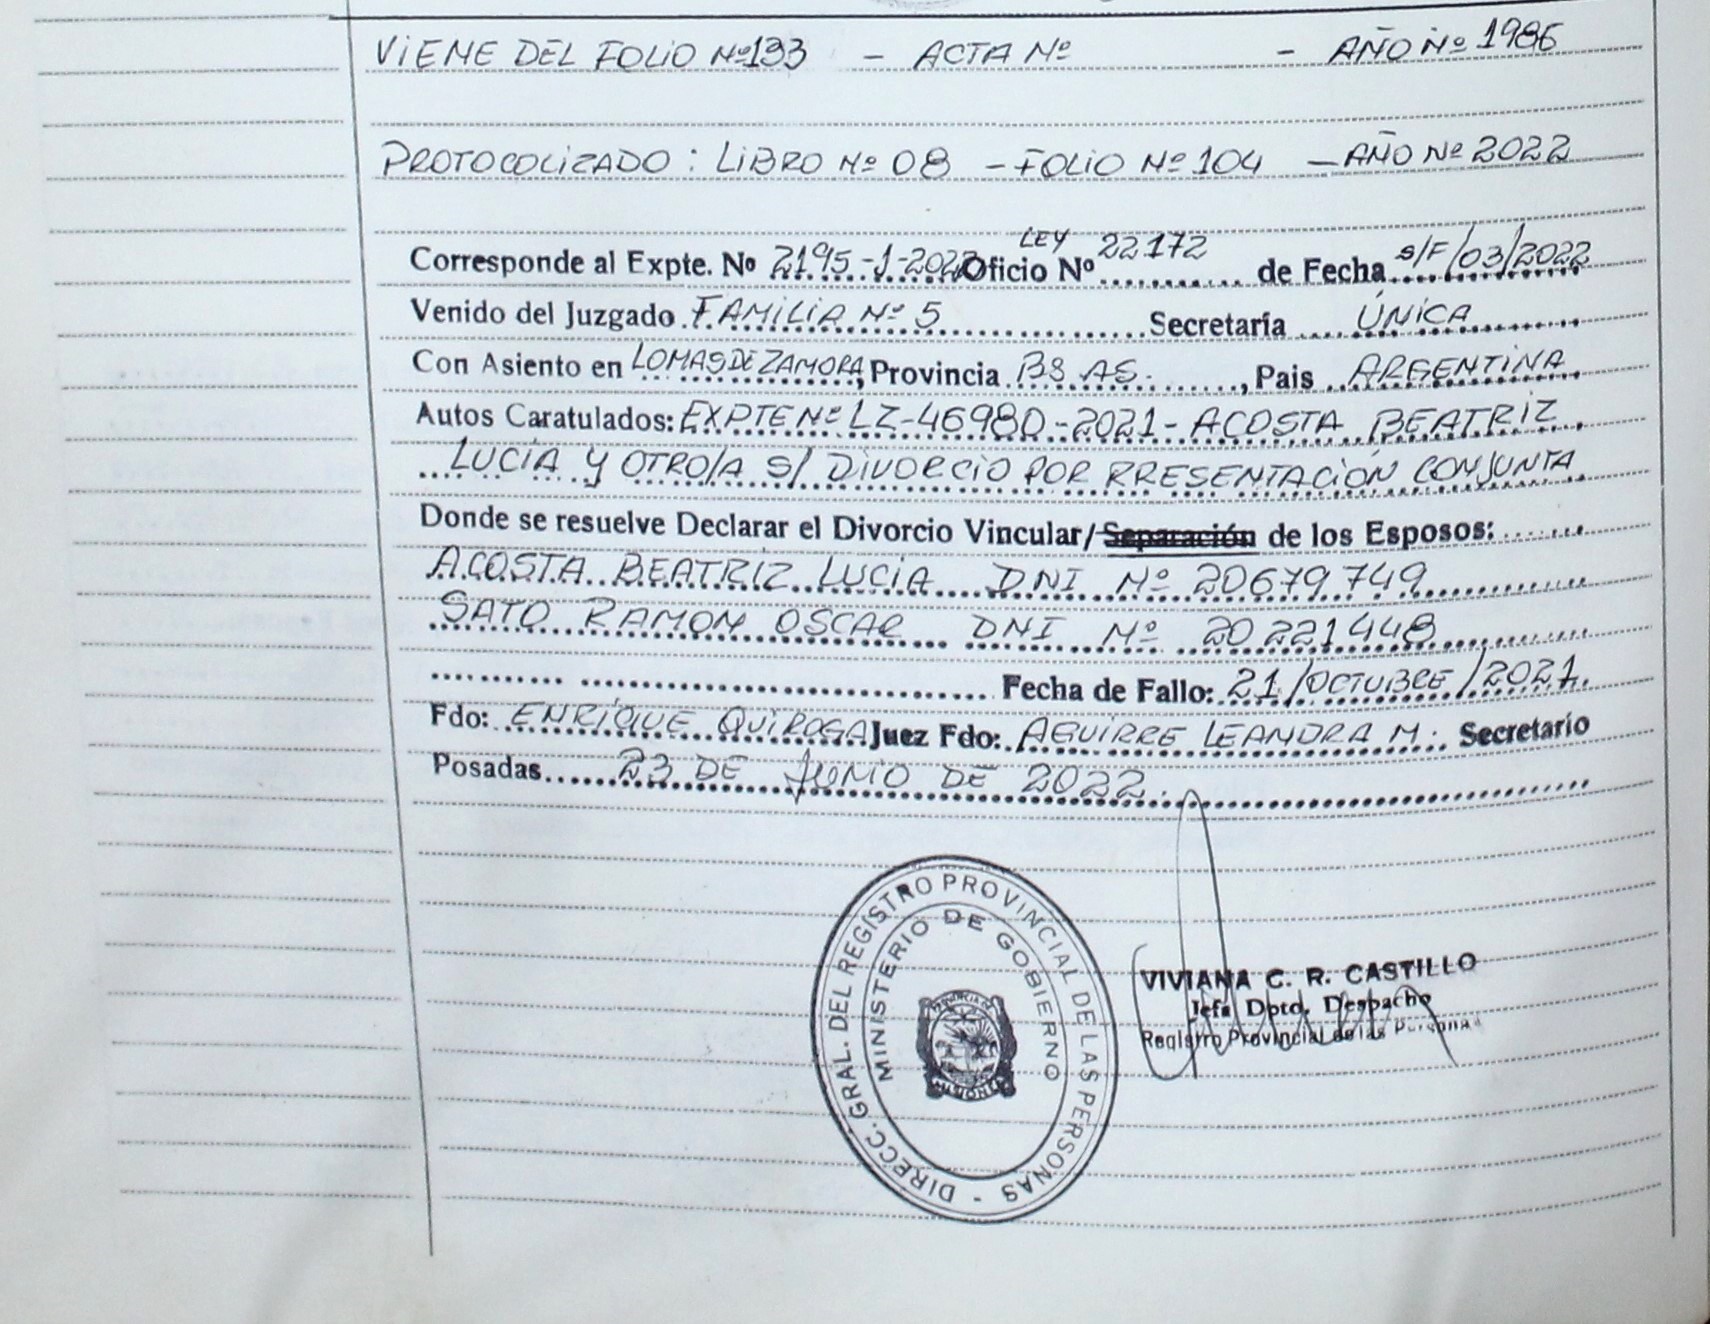 VIENE DEL FOLIO Nº 133 - ACTA Nº - AÑO Nº 1986
PROTOCOLIZADO: LIBRO Nº 08 - FOLIO Nº 104 - AÑO Nº 2022
Corresponde al Expte. Nº 2195-1-2022 Oficio Nº LEY 22172 de Fecha S/F/03/2022
Venido del Juzgado FAMILIA Nº 5 Secretaría ÚNICA
Con Asiento en LOMAS DE ZAMORA, Provincia BS AS., Pais ARGENTINA
Autos Caratulados: EXPTE Nº LZ-46980-2021- ACOSTA BEATRIZ
LUCÍA Y OTRO/A S/ DIVORCIO POR RRESENTACIÓN CONJUNTA
Donde se resuelve Declarar el Divorcio Vincular/Separación de los Esposos:
ACOSTA BEATRIZ LUCÍA DNI Nº 20679749
SATO RAMON OSCAR DNI Nº 20221448
Fecha de Fallo: 21/OCTUBRE/2021.
Fdo: ENRÍQUE QUIROGA Juez Fdo: AGUIRRE LEANDRA M. Secretario
Posadas 23 DE JUNIO DE 2022.
DIRECC. GRAL. DEL REGISTRO PROVINCIAL DE LAS PERSONAS -
MINISTERIO DE GOBIERNO
PROVINCIA DE
MISIONES
VIVIANA C. R. CASTILLO
Jefa Dpto. Despacho
Registro Provincial de las Personas